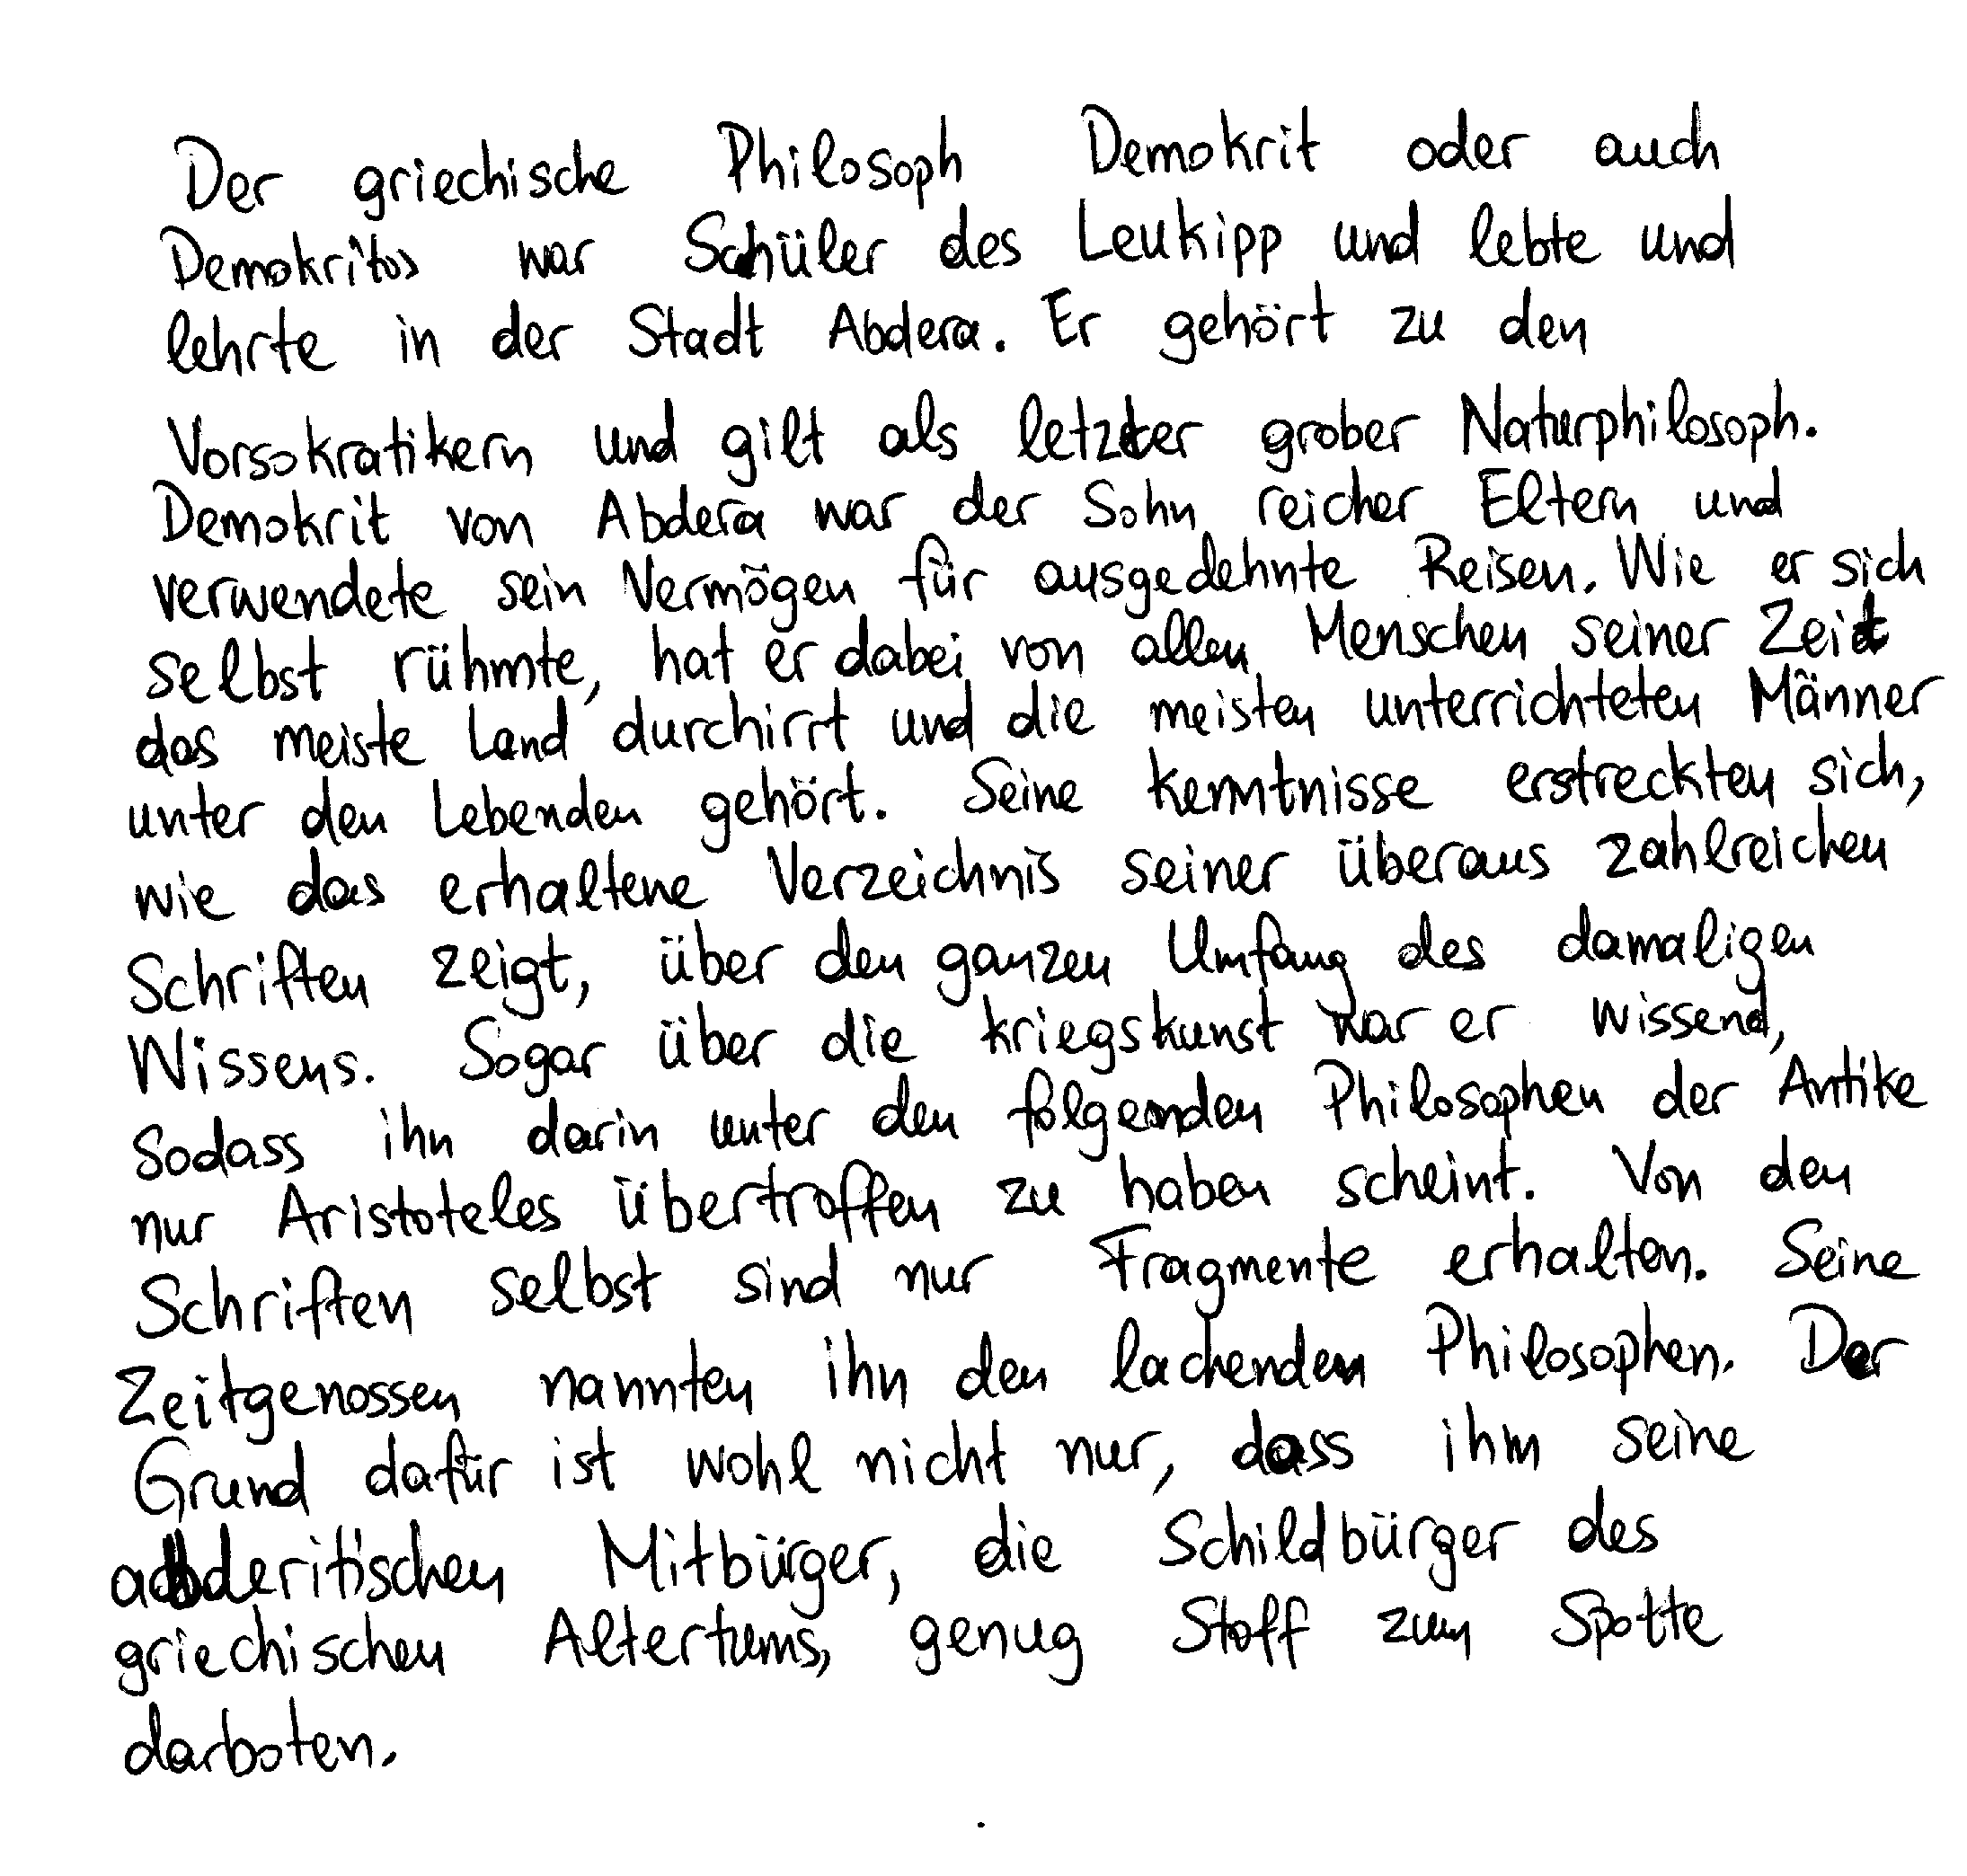 Der griechische Philosoph Demokrit oder auch
Demokritos war Schüler des Leukipp und lebte und
lehrte in der Stadt Abdera. Er gehört zu den
Vorsokratikern und gilt als letzter großer Naturphilosoph.
Demokrit von Abdera war der Sohn reicher Eltern und
verwendete sein Vermögen für ausgedehnte Reisen. Wie er sich
selbst rühmte, hat er dabei von allen Menschen seiner Zeit
das meiste Land durchirrt und die meisten unterrichteten Männer
unter den Lebenden gehört. Seine Kenntnisse erstreckten sich,
wie das erhaltene Verzeichnis seiner überaus zahlreichen
Schriften zeigt, über den ganzen Umfang des damaligen
Wissens. Sogar über die Kriegskunst war er wissend,
sodass ihn darin unter den folgenden Philosophen der Antike
nur Aristoteles übertroffen zu haben scheint. Von den
Schriften selbst sind nur Fragmente erhalten. Seine
Zeitgenossen nannten ihn den lachenden Philosophen. Der
Grund dafür ist wohl nicht nur, dass ihm seine
abderitischen Mitbürger, die Schildbürger des
griechischen Altertums, genug Stoff zum Spotte
darboten.